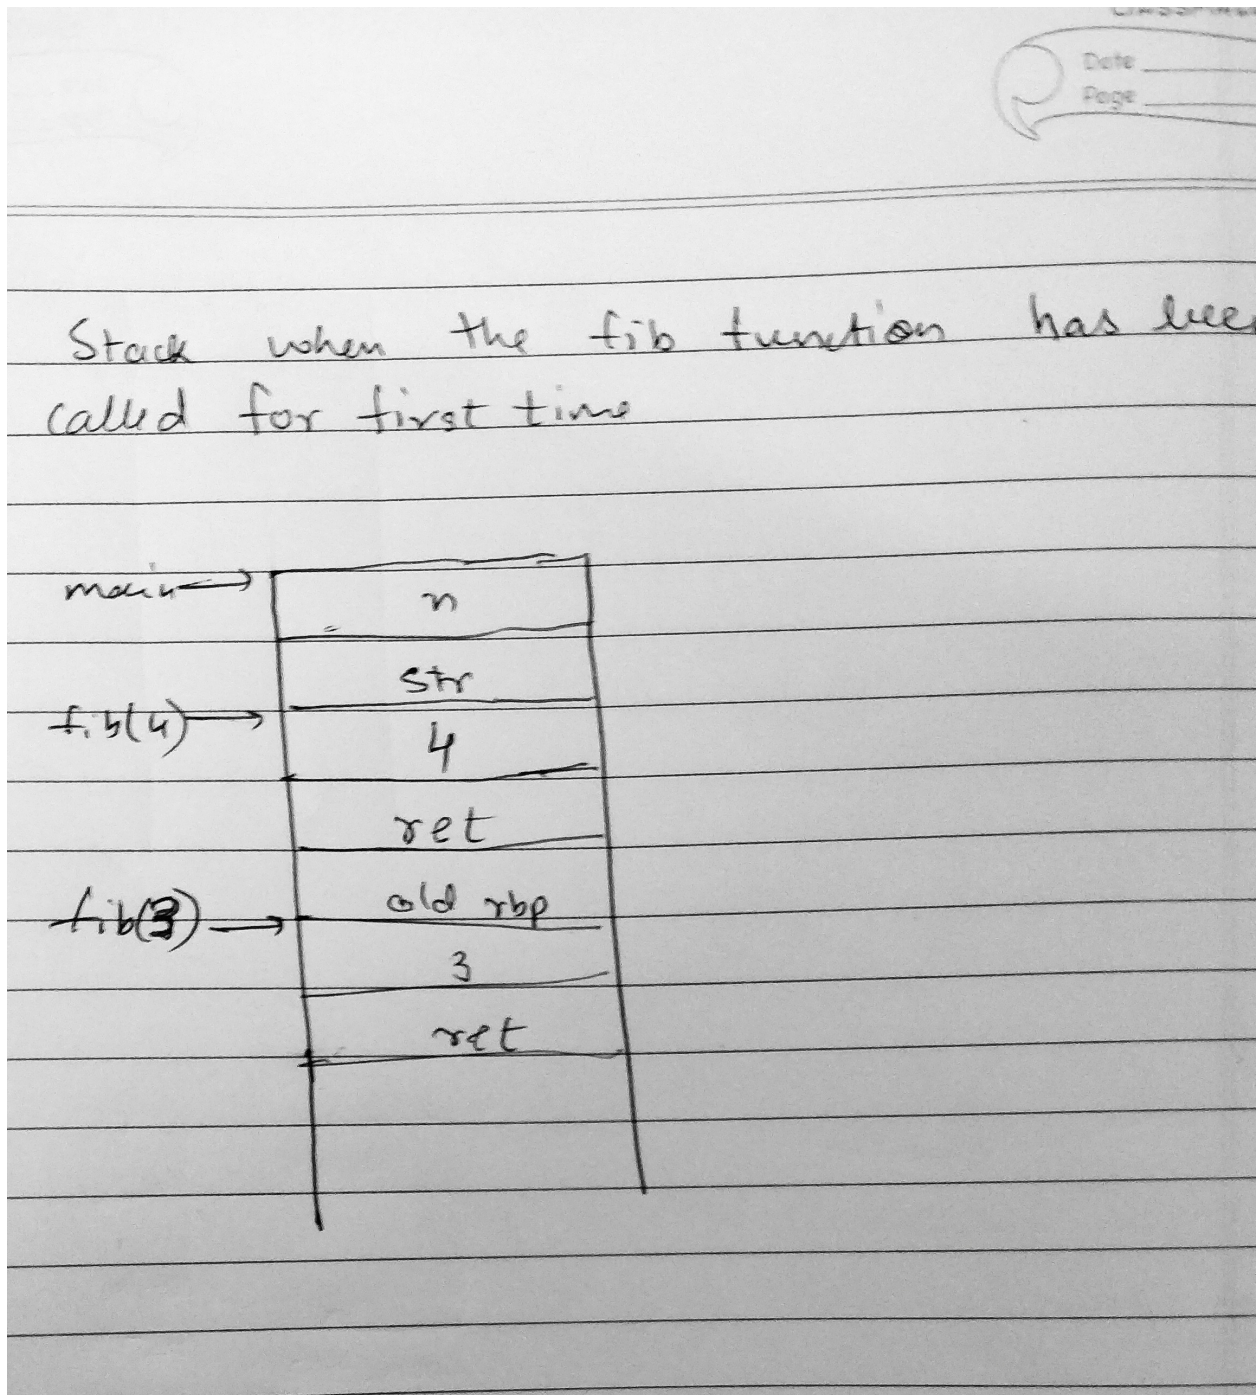 Date
Page
Stack when the fib function has
called for first time
main → n
str
fib(4) → 4
ret
old rbp
fib(3) →
3
ret